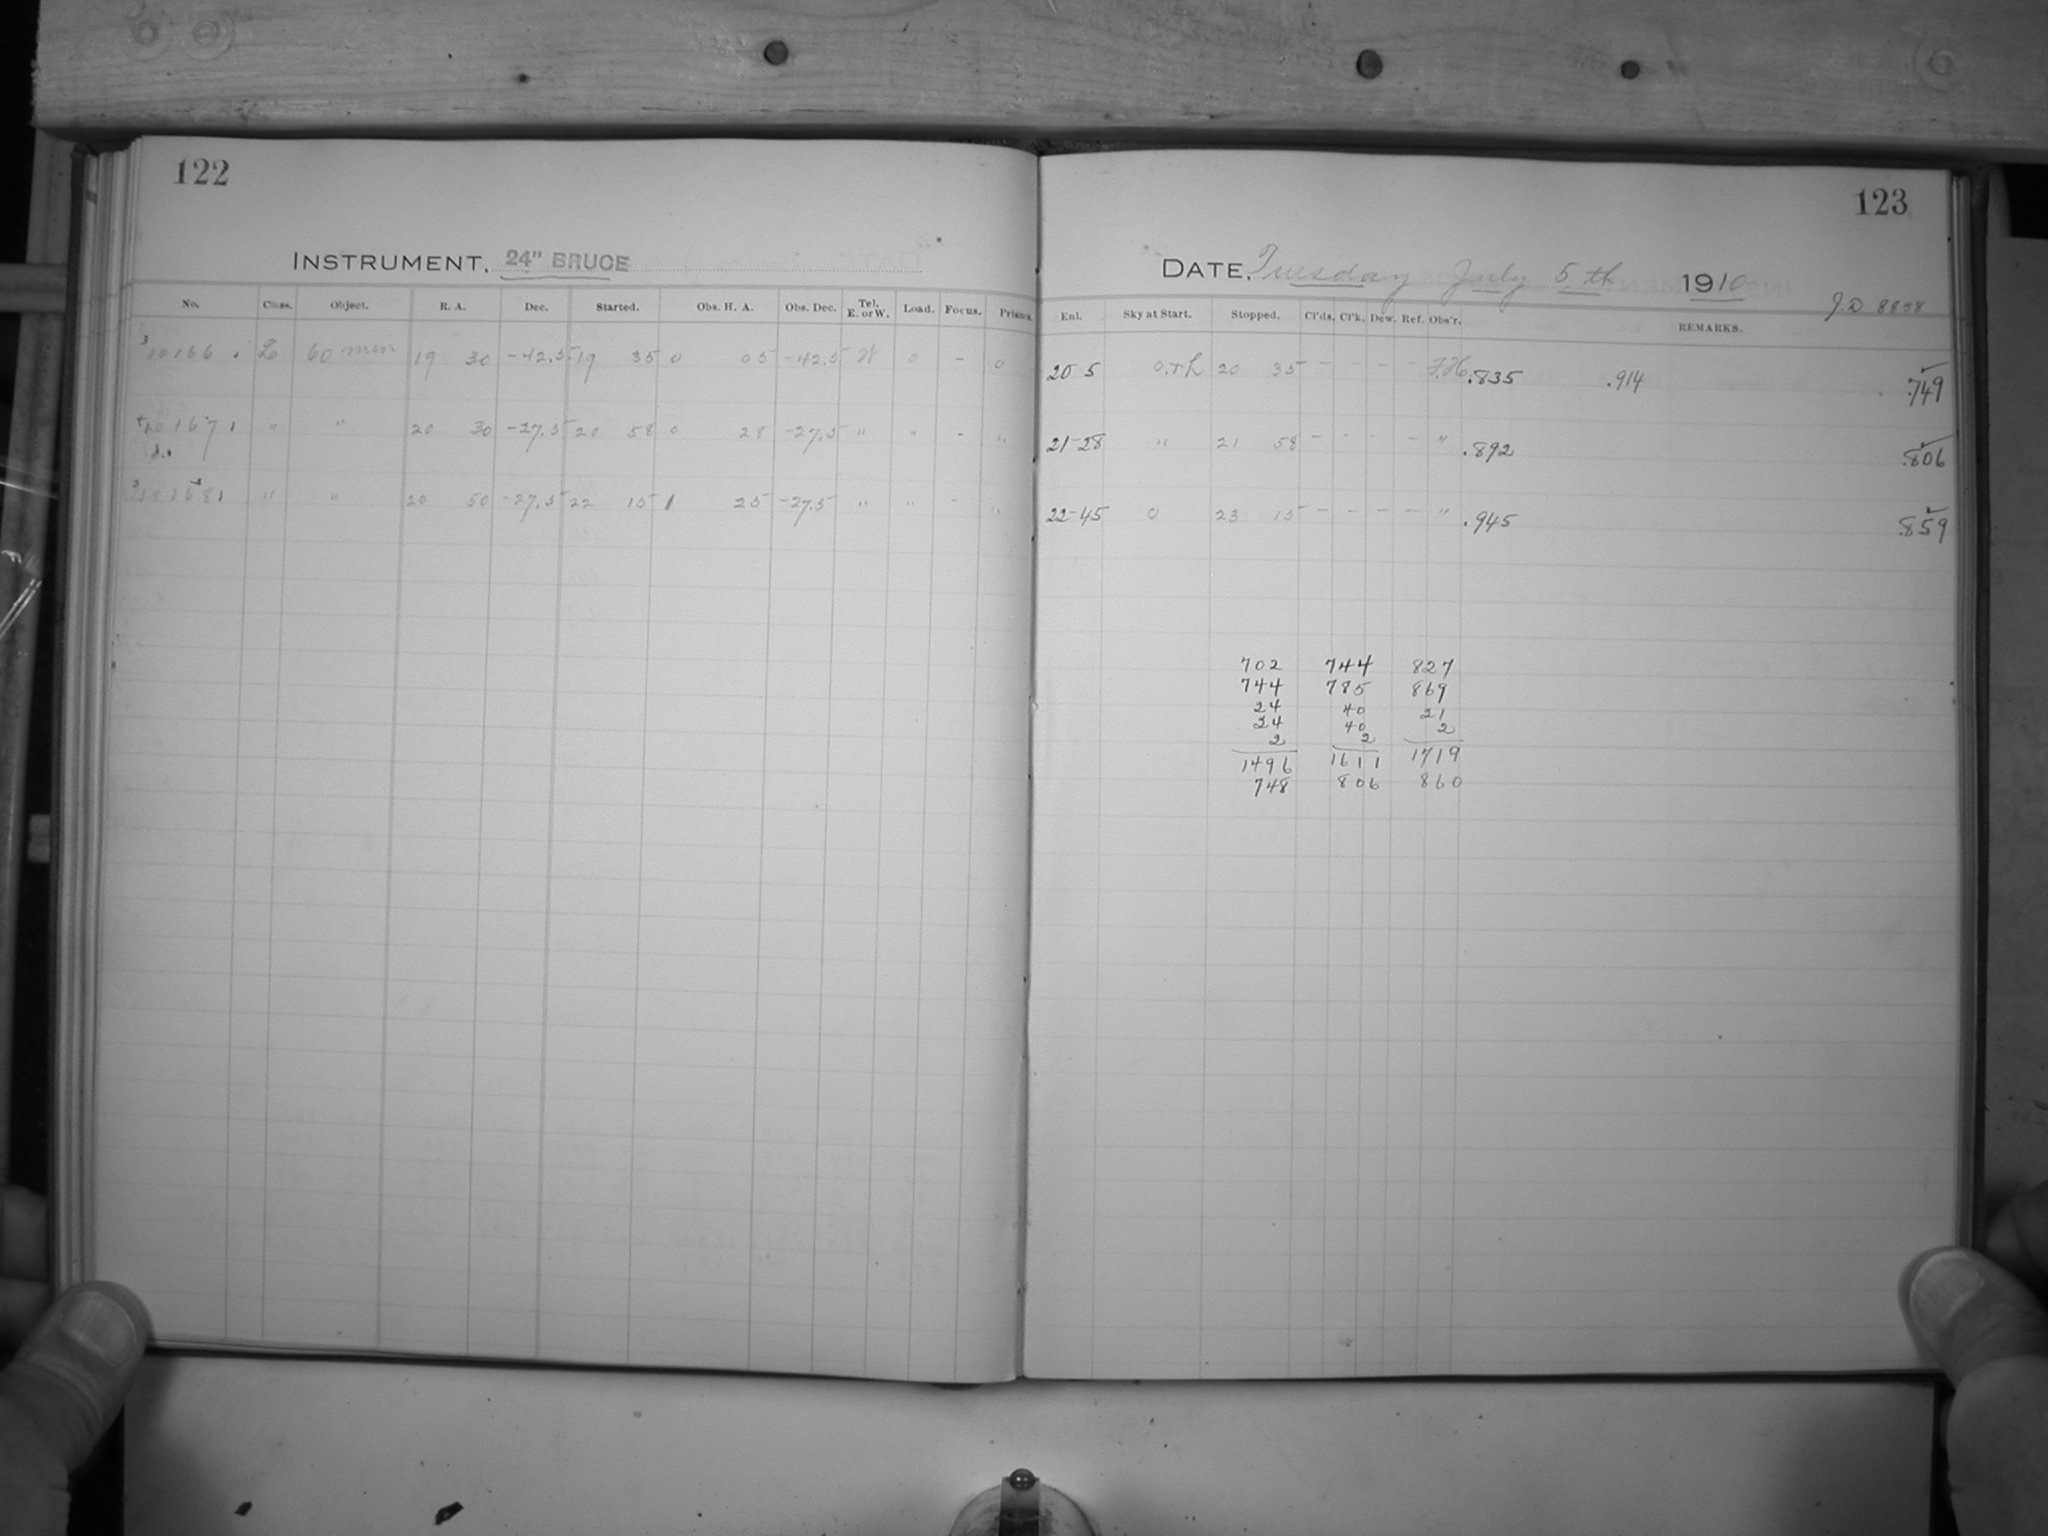 122
INSTRUMENT, 24" BRUCE
No. Class. Object. R. A. Dec. Started. Obs. H. A. Obs. Dec. Tel. E. or W. Load. Focus. Prisms.
10166 L 60 min 19 30 -42.5 19 35 0 05 -42.5 W 0 - 0
10167 " " 20 30 -27.5 20 58 0 28 -27.5 " " - "
10168 " " 20 50 -27.5 22 15 1 25 -27.5 " " - "
123
DATE, Tuesday July 5th 1910
J.D 8858
Enl. Sky at Start. Stopped. Cl'ds. Cl'k. Dew. Ref. Obs'r. REMARKS.
20 5 20 35 - - - - .835 .914 .749
21-28 " 21 58 - - - - " .892 .806
22-45 0 23 15 - - - - " .945 .859
702 744 827
744 785 869
24 40 21
24 40 2
2 2
1496 1611 1719
748 806 860